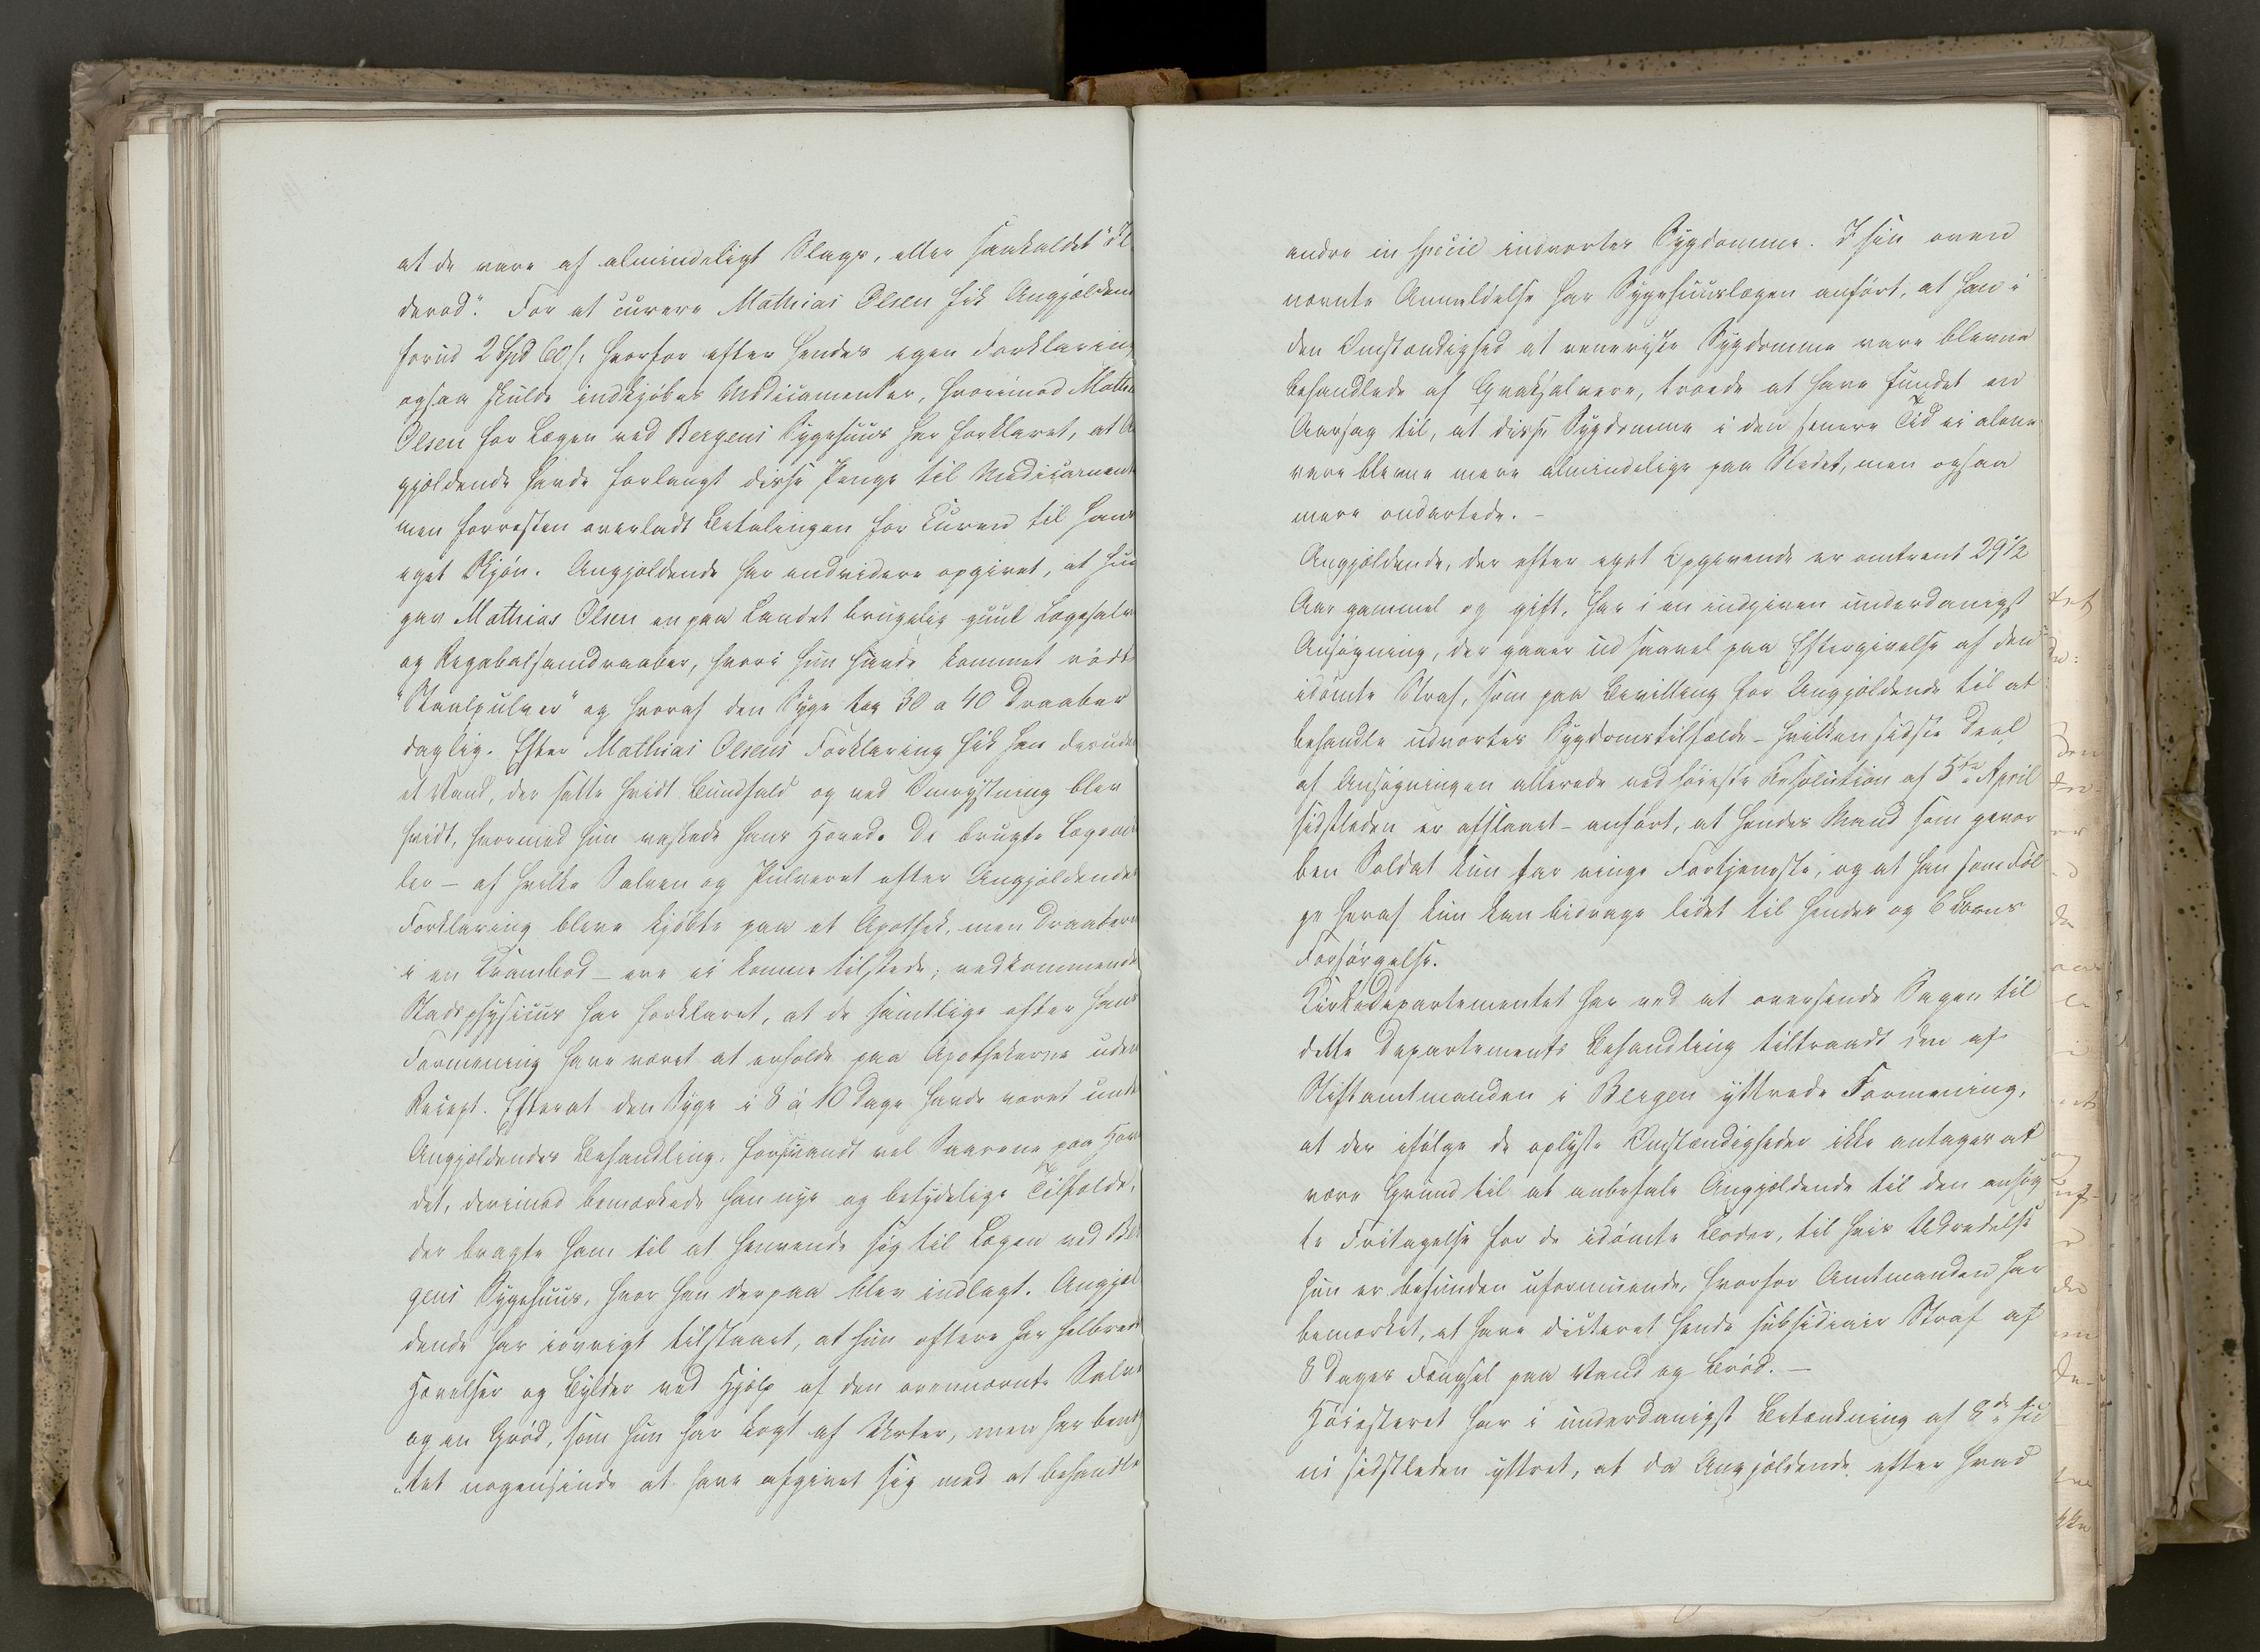 at de vare af almindeligt Slags, eller saakaldet "Il
derød". For at curere Mathias Olsen fik Angjælden
forud 2 Spd 60 s. hvorfor efter hendes egen Forklaring
ogsaa skulde indkjøbes Medicamenter, hvorimod Math
Olsen for Lægen ved Bergens Sygehuus har forklaret, at A
gjældende havde forlangt disse Penge til Medicament
men forresten overladt Betalingen for Curen til hans
eget Skjøn. Angjældende har endvidere opgivet, at hun
gav Mathias Olsen en paa Landet brugelig guul Lægesalve
og Rigabalsamdraaber, hvori hun havde kommet rødt
"Staalpulver" og hvoraf den Syge tog 30 a 40 Draaber
daglig. Efter Mathias Olsens Forklaring fik han desuden
et Vand, der satte hvidt Bundfald og ved Omrystning blev
hvidt, hvormed hun vaskede hans Hoved. De brugte Lægemi
ler – af hvilke Salven og Pulveret efter Angjældendes
Forklaring bleve kjøbte paa et Apothek, men Draaberne
i en Krambod – ere ei komne tilstede; vedkommende
Stadsphysicus har forklaret, at de samtlige efter hans
Formening have været at erholde paa Apothekerne uden
Recept. Efterat den Syge i 8 à 10 Dage havde været unde
Angjældendes Behandling, forsvandt vel Saarene paa Hove
det, derimod bemærkede han nye og betydelige Tilfælde,
der bragte ham til at henvende sig til Lægen ved Ber
gens Sygehuus, hvor han derpaa blev indlagt. Angjæl
dende har iøvrigt tilstaaet, at hun oftere har helbredet
Hævelser og Bylder ved Hjælp af den ovennævnte Salve
og en Grød, som hun har kogt af Urter, men har benæg
tet nogensinde at have afgivet sig med at behandle
andre in specie indvortes Sygdomme. I sin oven
nævnte Anmeldelse har Sygehuuslægen anført, at han i
den Omstændighed at veneriske Sygdomme vare blevne
behandlede af Qvaksalvere, troede at have fundet en
Aarsag til, at disse Sygdomme i den senere Tid ei alene
vare blevne mere almindelige paa Stedet, men ogsaa
mere ondartede. –
Angjældende, der efter eget Opgivende er omtrent 29 1/2
Aar gammel og gift, har i en indgiven underdanigst
Ansøgning, der gaaer ud saavel paa Eftergivelse af den
idømte Straf, som paa Bevilling for Angjældende til at
behandle udvortes Sygdomstilfælde – hvilken sidste Deel
af Ansøgningen allerede ved høieste Resolution af 5te April
sidstleden er afslaaet – anført, at hendes Mand som gevor
ben Soldat kun har ringe Fortjeneste, og at han som Føl
ge heraf kun kan bidrage lidet til hendes og 6 Børns
Forsørgelse.
Kirkedepartementet har ved at oversende Sagen til
dette Departements Behandling tiltraadt den af
Stiftamtmanden i Bergen yttrede Formening,
at der ifølge de oplyste Omstændigheder ikke antages at
være Grund til at anbefale Angjældende til den ansøg
te Fritagelse for de idømte Bøder, til hvis Udredelse
hun er befunden uformuende, hvorfor Amtmanden har
bemærket, at have dicteret hende subsidiair Straf af
8 Dages Fængsel paa Vand og Brød. –
Høiesteret har i underdanigst Betænkning af 8de Ju
ni sidstleden yttret, at da Angjældende efter hvad